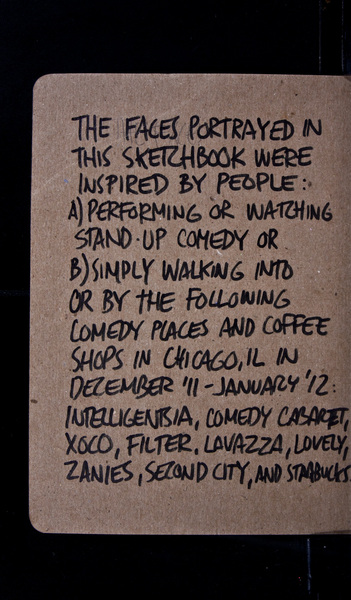 THE FACES PORTRAYED IN
THIS SKETCHBOOK WERE
INSPIRED BY PEOPLE:
A) PERFORMING OR WATCHING
STAND-UP COMEDY OR
B) SIMPLY WALKING INTO
OR BY THE FOLLOWING
COMEDY PLACES AND COFFEE
SHOPS IN CHICAGO, IL IN
DECEMBER '11 - JANUARY '12:
INTELLIGENTSIA, COMEDY CABARET,
XOCO, FILTER, LAVAZZA, LOVELY,
ZANIES, SECOND CITY, AND STARBUCKS.